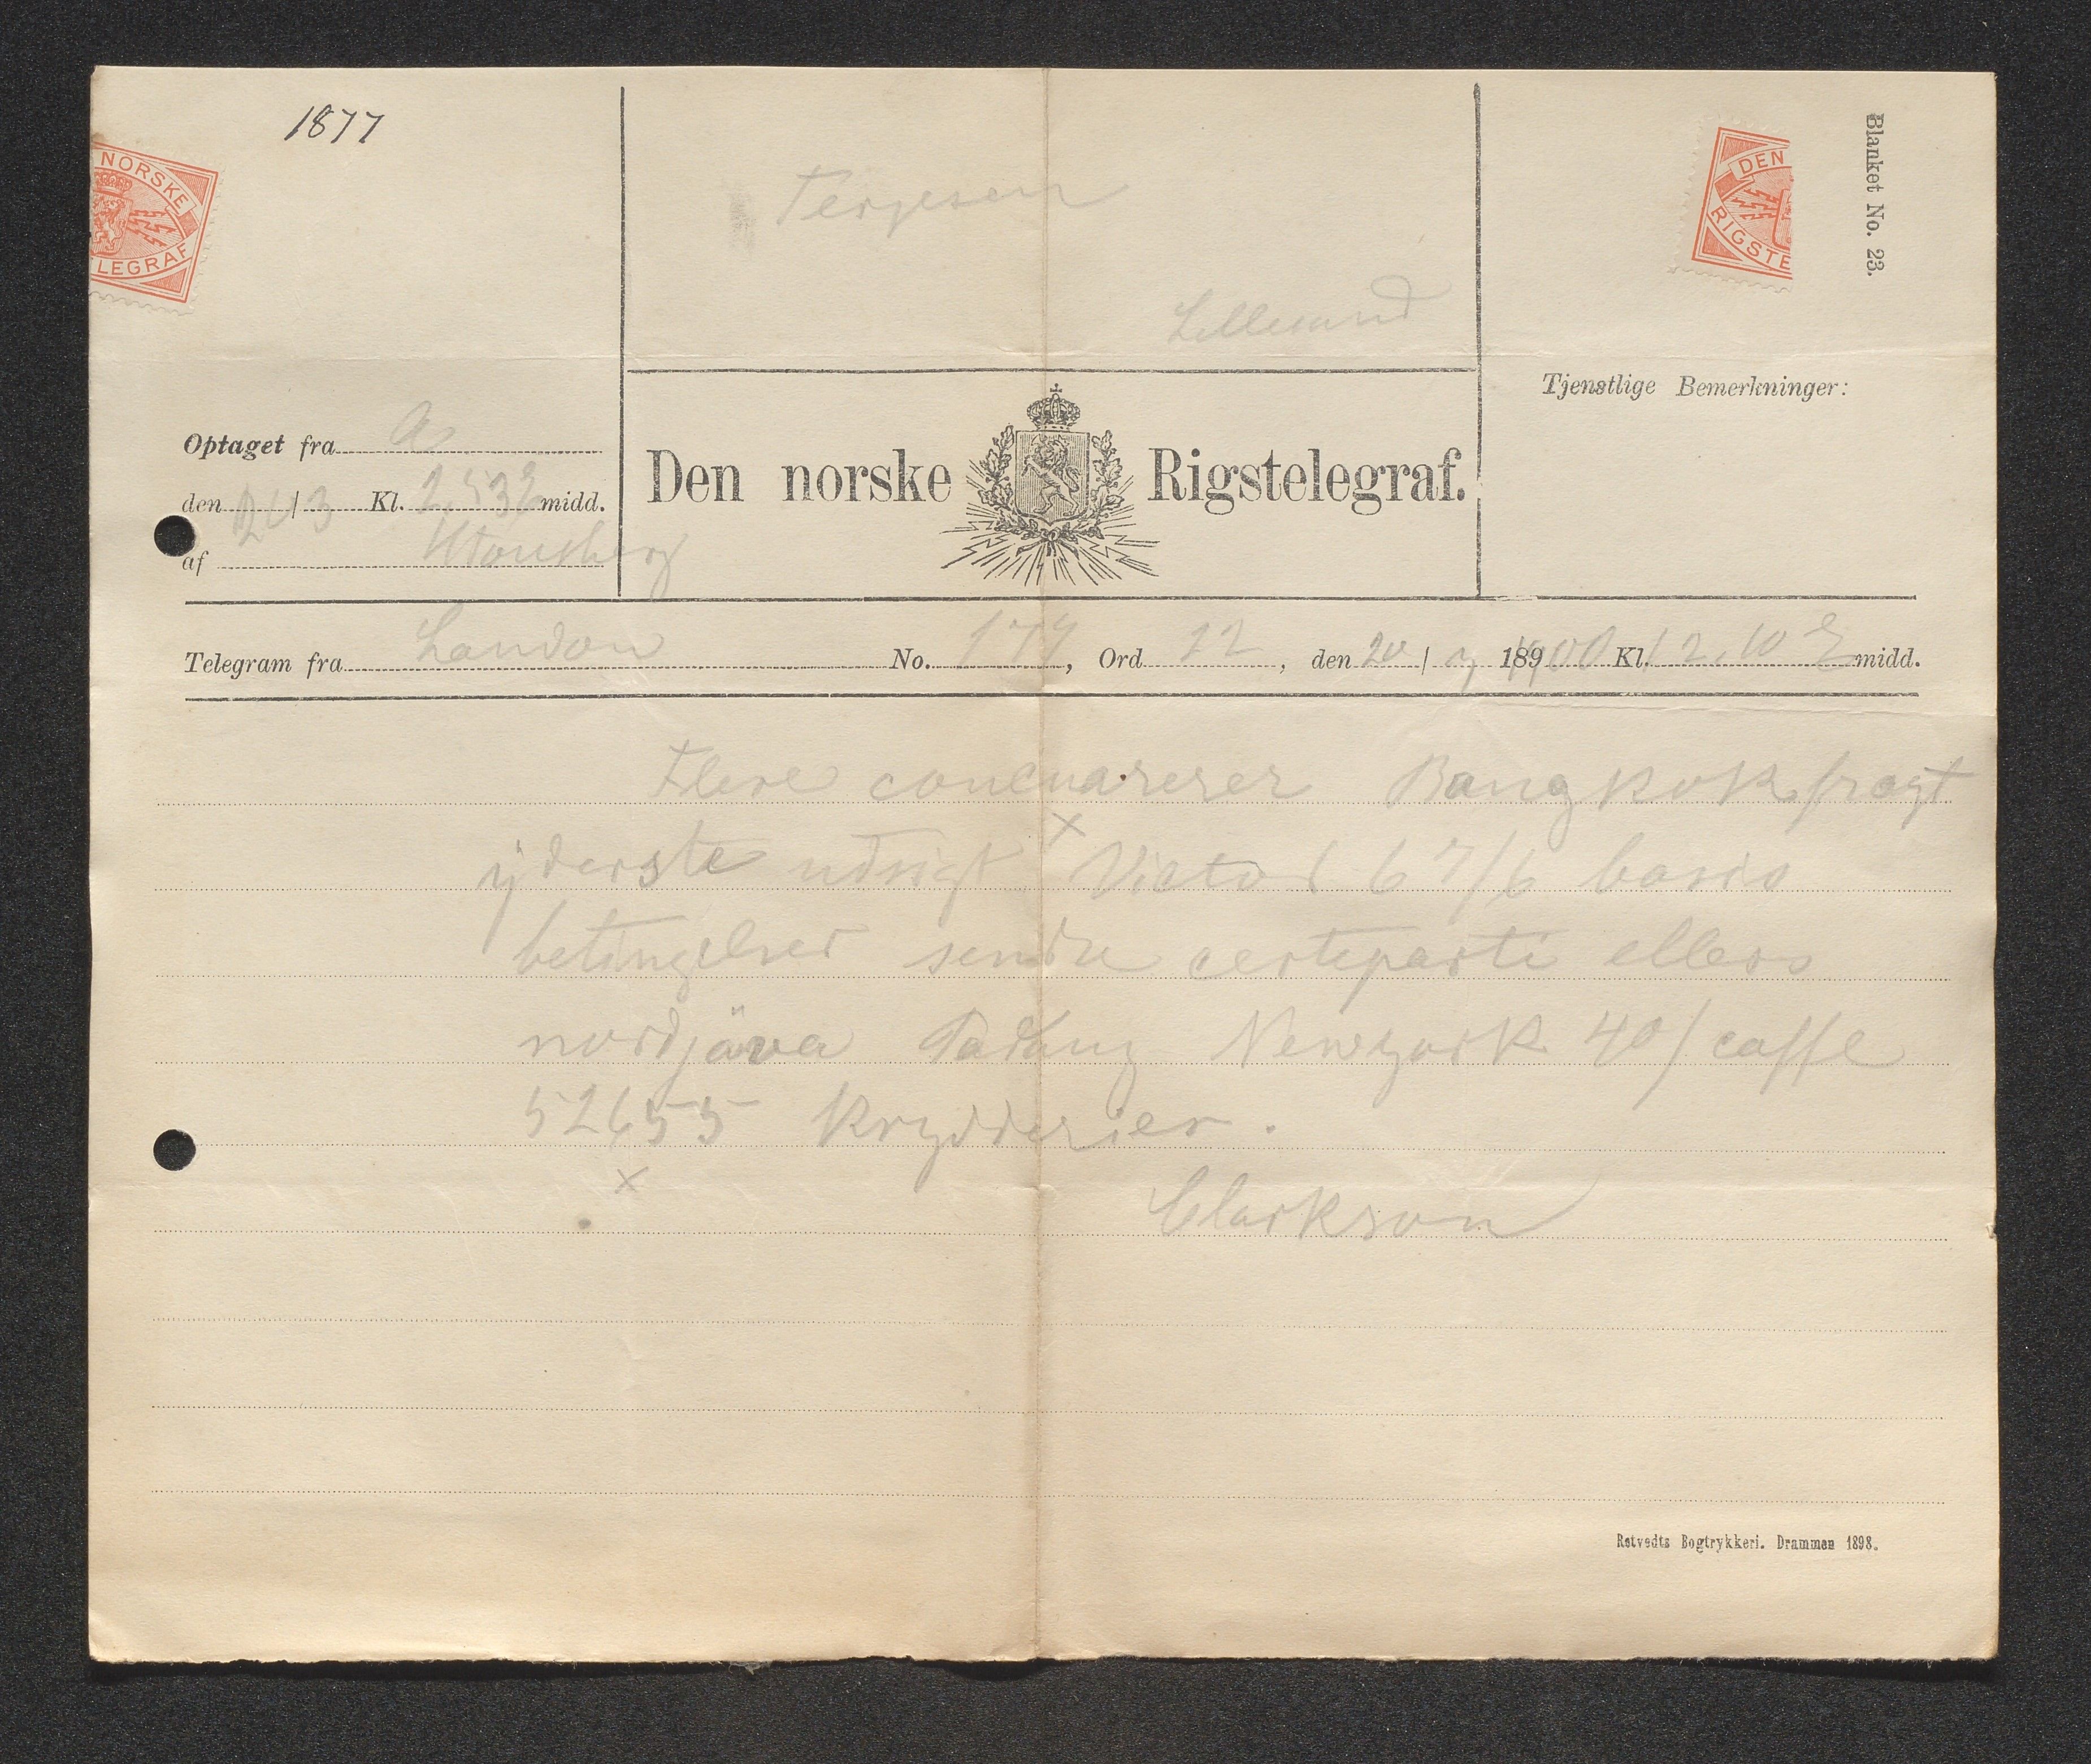 1877
NORSKE
LEGRAF
Terjesen
Lillesand
DEN
RIGSTE
Blanket No. 23.
Tjenstlige Bemerkninger:
Optaget fra A
den Kl. 2,53 midd.
af
Den norske Rigstelegraf.
Telegram fra London No. 174, Ord 22, den 20/7 1900 Kl. 12.10 E midd.
Flere concurerer Bangkok fragt
yderste udsigt Victor 67/6 basis
betingelser sendre certeparti ellers
nordjava Padang Newyork 40/ caffe
52655 Krydderier.
Clarkson
Retvedts Bogtrykkeri. Drammen 1898.